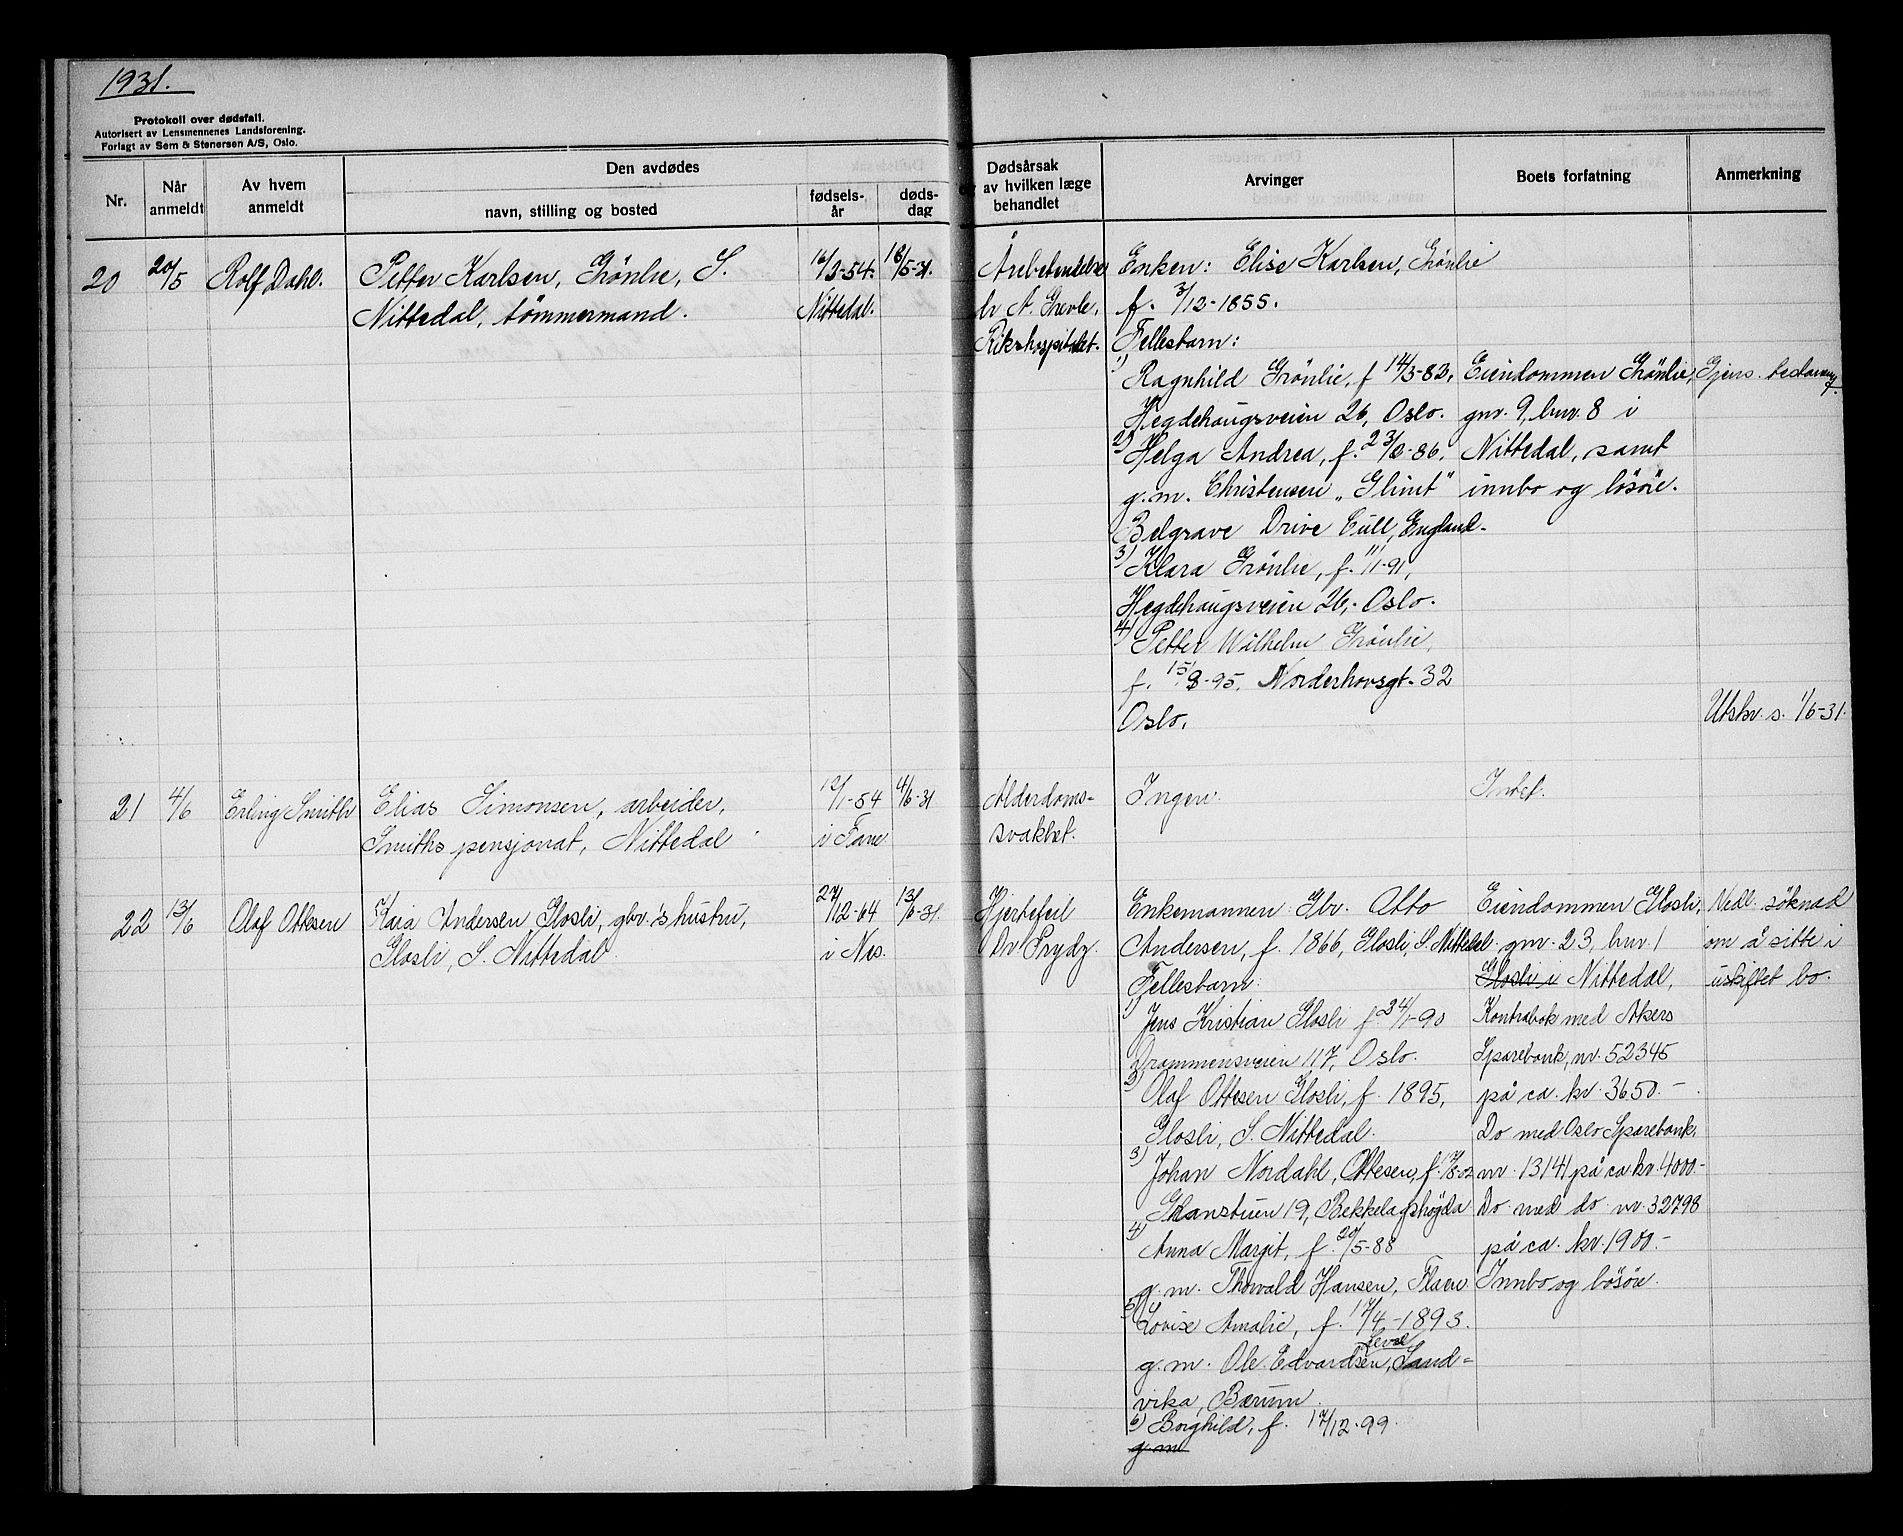 1931.
Protokoll over dødsfall.
Autorisert av Lensmennenes Landsforening.
Forlagt av Sem & Stenersen A/S, Oslo.
Nr.
Når anmeldt
Av hvem anmeldt
Den avdødes
navn, stilling og bosted
fødsels-år
døds-dag
Dødsårsak
av hvilken læge
behandlet
Arvinger
Boets forfatning
Anmerkning
20 20/5 Rolf Dahl. Petter Karlsen, Grönlie, S. 16/3-54. 18/5-31.
Nittedal, tömmermand. Nittedal.
Årebetendelse
dr A. Grevle,
Rikshospitalet.
Enken: Elise Karlsen, Grönlie
f. 3/12-1855.
Fellesbarn:
1) Ragnhild Grönlie, f 14/3-83,
Hegdehaugsveien 26, Oslo.
2) Helga Andrea, f. 23/2-86,
g.m. Christensen "Glimt"
Belgrave Drive Cull, England.
3) Klara Grönlie, f. 1/1-91,
Hegdehaugsveien 26, Oslo.
4) Petter Wilhelm Grönlie,
f. 15/9-95, Norderhovsgt. 32
Oslo.
Eiendommen Grönlie,
gnr. 9, bnr. 8 i
Nittedal, samt
innbo og lösöre.
Gjens.
Utskr. s. 1/6-31.
21 4/6 Erling Smith Elias Simonsen, arbeider, 12/1-54 4/6-31
Smiths pensjonat, Nittedal i Fane
Alderdoms-
svakhet.
Ingen.
Intet.
22 13/6 Olaf Ottesen Kaia Andersen Glosli, gbr.'s hustru, 27/12-64 13/6-31.
Glosli, S. Nittedal. i Nes.
Hjertefeil
Dr Prydz.
Enkemannen Gbr. Otto
Andersen, f. 1866, Glosli, S. Nittedal
Fellesbarn:
1) Jens Kristian Glosli f. 24/1-90
Drammensveien 117, Oslo.
2) Olaf Ottesen Glosli, f. 1895,
Glosli, S. Nittedal.
3) Johan Nordahl, Ottesen, f. 17/8-02
19, Bekkelagshögda
4) Anna Margit, f. 20/5-88
g.m. Thorvald Hansen,
5) Lovise Amalie, f. 17/4-1893.
g.m. Ole Edvardsen, Sand-
vika, Bærum.
6) Borghild, f. 17/12-99.
g.m
Eiendommen Glosli,
gnr. 23, bnr. 1
Glosli i Nittedal,
Kontrabok med Akers
Sparebank, nr. 52345
på ca. kr. 3650.-
Do med Oslo Sparebank,
nr. 13141 på ca kr. 4000.-
Do med do nr. 32798
på ca. kr. 1900.-
Innbo og lösöre.
Vedl. söknad
om å sitte i
uskiftet bo.